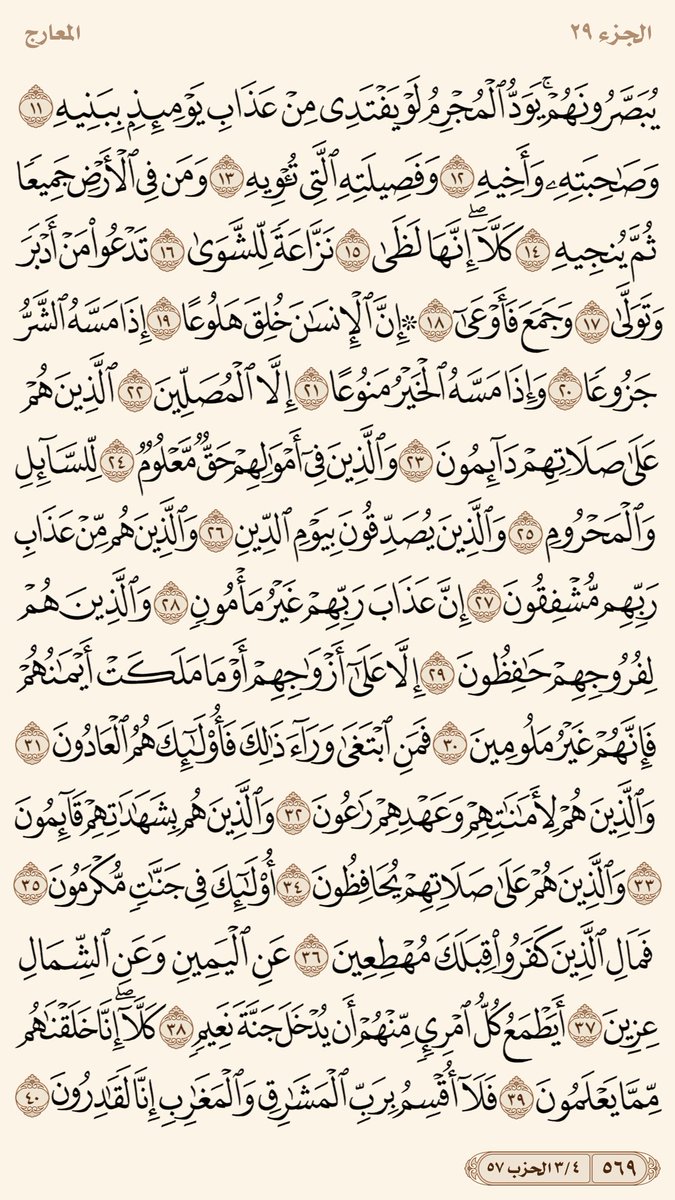 الجزء ٢٩
المعارج
يُبَصَّرُونَهُمْۚ يَوَدُّ ٱلْمُجْرِمُ لَوْ يَفْتَدِى مِنْ عَذَابِ يَوْمِئِذِۭ بِبَنِيهِ ١١
وَصَٰحِبَتِهِۦ وَأَخِيهِ ١٢ وَفَصِيلَتِهِ ٱلَّتِى تُـْٔوِيهِ ١٣ وَمَن فِى ٱلْأَرْضِ جَمِيعًا
ثُمَّ يُنجِيهِ ١٤ كَلَّآۖ إِنَّهَا لَظَىٰ ١٥ نَزَّاعَةً لِّلشَّوَىٰ ١٦ تَدْعُوا۟ مَنْ أَدْبَرَ
وَتَوَلَّىٰ ١٧ وَجَمَعَ فَأَوْعَىٰٓ ١٨ ۞ إِنَّ ٱلْإِنسَٰنَ خُلِقَ هَلُوعًا ١٩ إِذَا مَسَّهُ ٱلشَّرُّ
جَزُوعًا ٢٠ وَإِذَا مَسَّهُ ٱلْخَيْرُ مَنُوعًا ٢١ إِلَّا ٱلْمُصَلِّينَ ٢٢ ٱلَّذِينَ هُمْ
عَلَىٰ صَلَاتِهِمْ دَآئِمُونَ ٢٣ وَٱلَّذِينَ فِىٓ أَمْوَٰلِهِمْ حَقٌّ مَّعْلُومٌ ٢٤ لِّلسَّآئِلِ
وَٱلْمَحْرُومِ ٢٥ وَٱلَّذِينَ يُصَدِّقُونَ بِيَوْمِ ٱلدِّينِ ٢٦ وَٱلَّذِينَ هُم مِّنْ عَذَابِ
رَبِّهِم مُّشْفِقُونَ ٢٧ إِنَّ عَذَابَ رَبِّهِمْ غَيْرُ مَأْمُونٍ ٢٨ وَٱلَّذِينَ هُمْ
لِفُرُوجِهِمْ حَٰفِظُونَ ٢٩ إِلَّا عَلَىٰٓ أَزْوَٰجِهِمْ أَوْ مَا مَلَكَتْ أَيْمَٰنُهُمْ
فَإِنَّهُمْ غَيْرُ مَلُومِينَ ٣٠ فَمَنِ ٱبْتَغَىٰ وَرَآءَ ذَٰلِكَ فَأُو۟لَٰٓئِكَ هُمُ ٱلْعَادُونَ ٣١
وَٱلَّذِينَ هُمْ لِأَمَٰنَٰتِهِمْ وَعَهْدِهِمْ رَٰعُونَ ٣٢ وَٱلَّذِينَ هُم بِشَهَٰدَٰتِهِمْ قَآئِمُونَ
٣٣ وَٱلَّذِينَ هُمْ عَلَىٰ صَلَاتِهِمْ يُحَافِظُونَ ٣٤ أُو۟لَٰٓئِكَ فِى جَنَّٰتٍ مُّكْرَمُونَ ٣٥
فَمَالِ ٱلَّذِينَ كَفَرُوا۟ قِبَلَكَ مُهْطِعِينَ ٣٦ عَنِ ٱلْيَمِينِ وَعَنِ ٱلشِّمَالِ
عِزِينَ ٣٧ أَيَطْمَعُ كُلُّ ٱمْرِئٍ مِّنْهُمْ أَن يُدْخَلَ جَنَّةَ نَعِيمٍ ٣٨ كَلَّآۖ إِنَّا خَلَقْنَٰهُم
مِّمَّا يَعْلَمُونَ ٣٩ فَلَآ أُقْسِمُ بِرَبِّ ٱلْمَشَٰرِقِ وَٱلْمَغَٰرِبِ إِنَّا لَقَٰدِرُونَ ٤٠
٥٦٩ ٣/٤ الحزب ٥٧